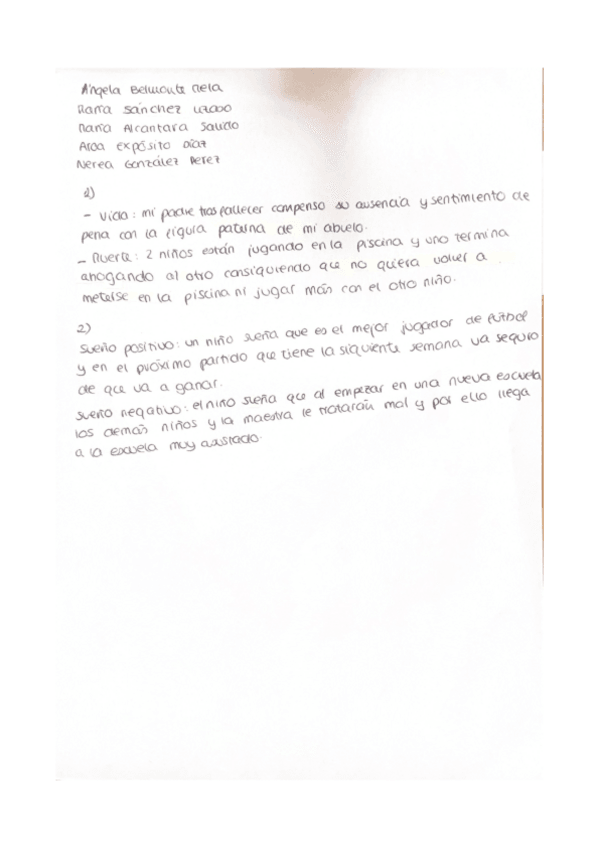 Ángela Belmonte
María Sánchez
María Alcántara
Aroa Expósito Díaz
Nerea González Pérez
1)
- Vida: mi padre tras fallecer compenso su ausencia y sentimiento de
pena con la figura paterna de mi abuelo.
- Muerte: 2 niños están jugando en la piscina y uno termina
ahogando al otro consiguiendo que no quiera volver a
meterse en la piscina ni jugar más con el otro niño.
2)
Sueño positivo: un niño sueña que es el mejor jugador de fútbol
y en el próximo partido que tiene la siguiente semana va seguro
de que va a ganar.
Sueño negativo: el niño sueña que al empezar en una nueva escuela
los demás niños y la maestra le tratarán mal y por ello llega
a la escuela muy asustado.